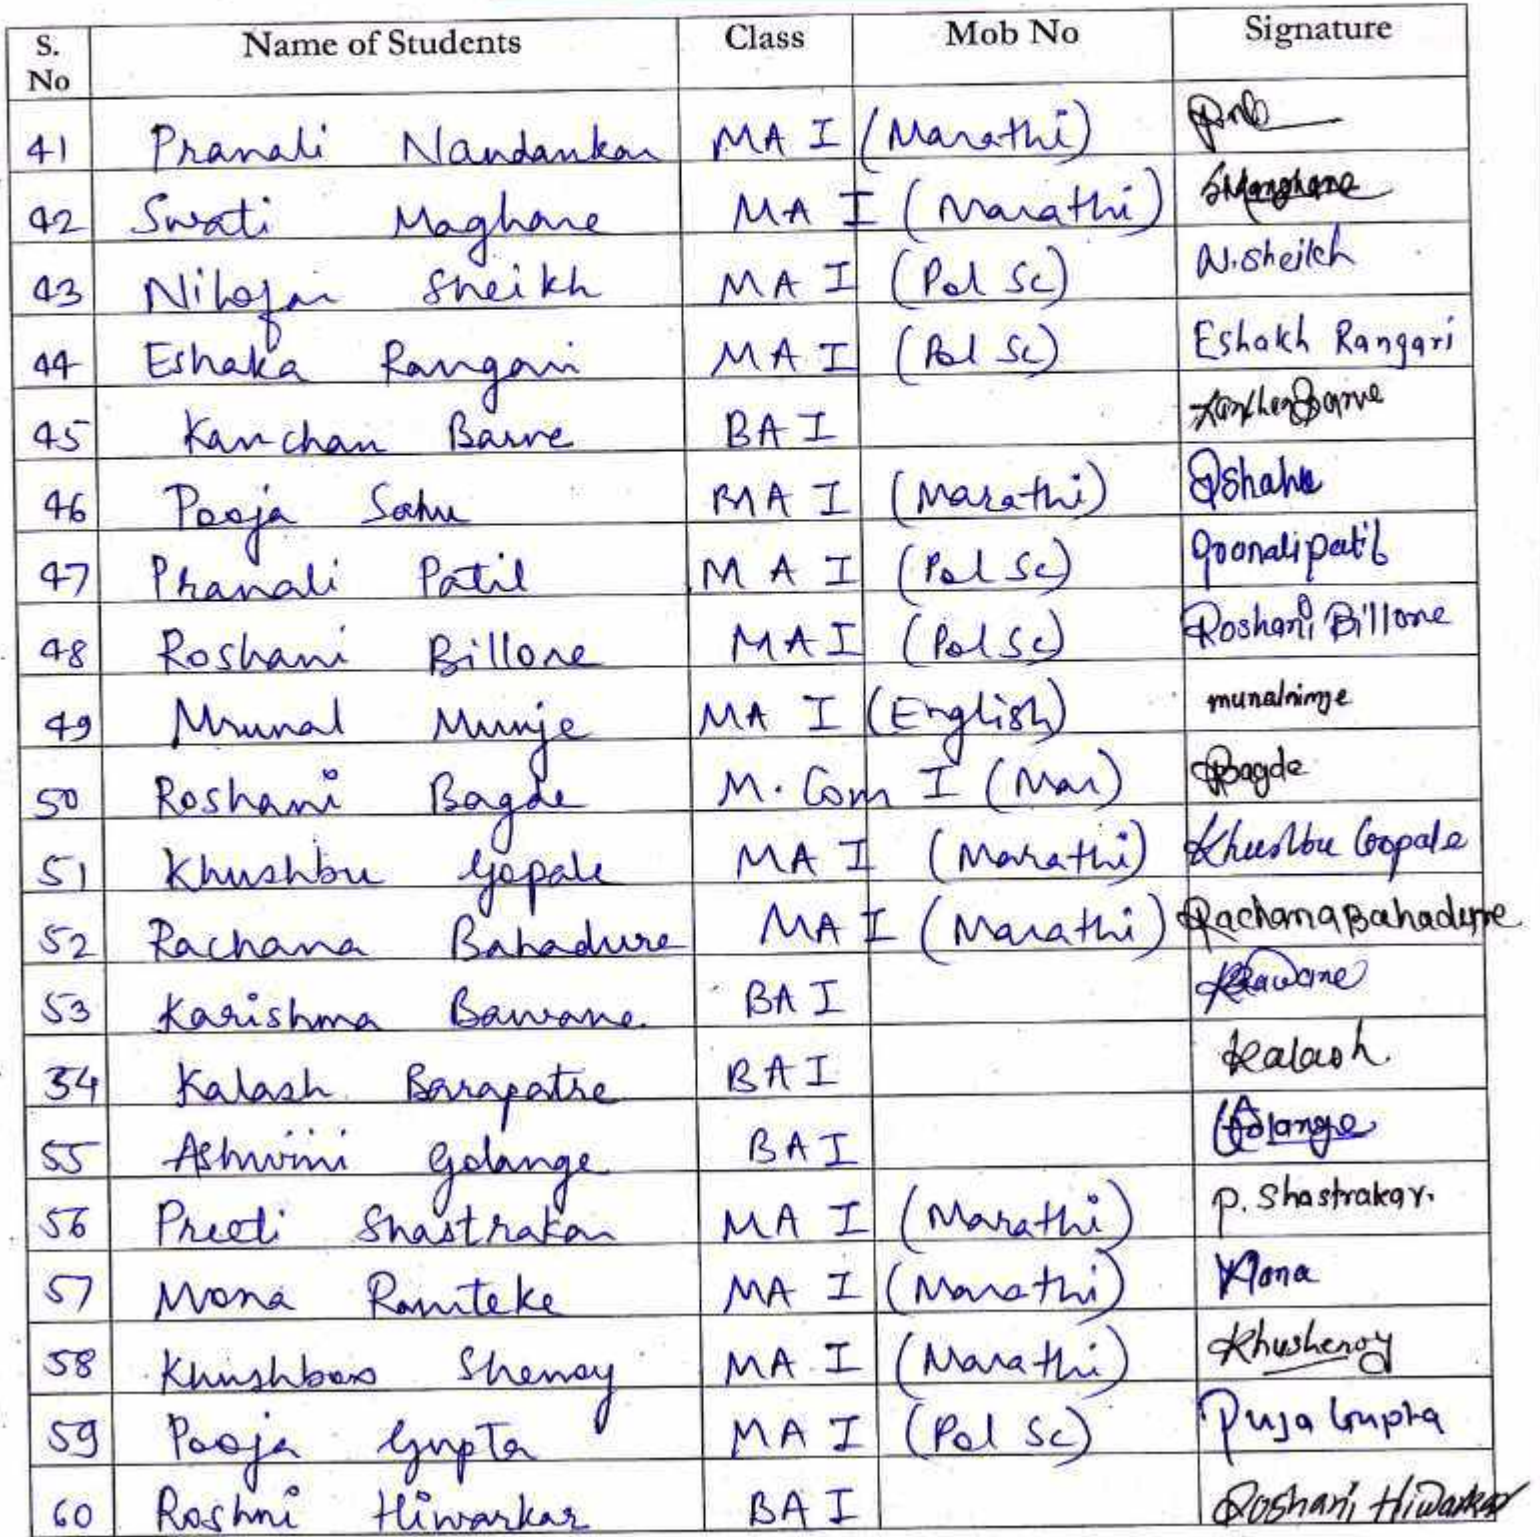 S. No Name of Students Class Mob No Signature
41 Pranali Nandankar MA I (Marathi)
42 Swati Maghare MA I (Marathi)
43 Nilofar Sheikh MA I (Pol Sc) N. Sheikh
44 Eshaka Rangari MA I (Pol Sc) Eshakh Rangari
45 Kanchan Barve BA I
46 Pooja Sahu MA I (Marathi) Pshahu
47 Pranali Patil MA I (Pol Sc) Pranali patil
48 Roshani Billore MA I (Pol Sc) Roshani Billore
49 Mrunal Munje MA I (English)
50 Roshani Bagde M. Com I (Mar) RBagde
51 Khushbu Gopale MA I (Marathi) Khushbu Gopale
52 Rachana Bahadure MA I (Marathi) Rachana Bahadure
53 Karishma Bawane BA I KBawane
54 Kalash Barapatre BA I Kalash.
55 Ashwini Golange BA I Golange
56 Preeti Shastrakar MA I (Marathi) P. Shastrakar.
57 Mona Ramteke MA I (Marathi) Mona
58 Khushboo Shenoy MA I (Marathi) Khushenoy
59 Pooja Gupta MA I (Pol Sc) Puja Gupta
60 Roshni Hiwarkar BA I Roshani Hiwarkar